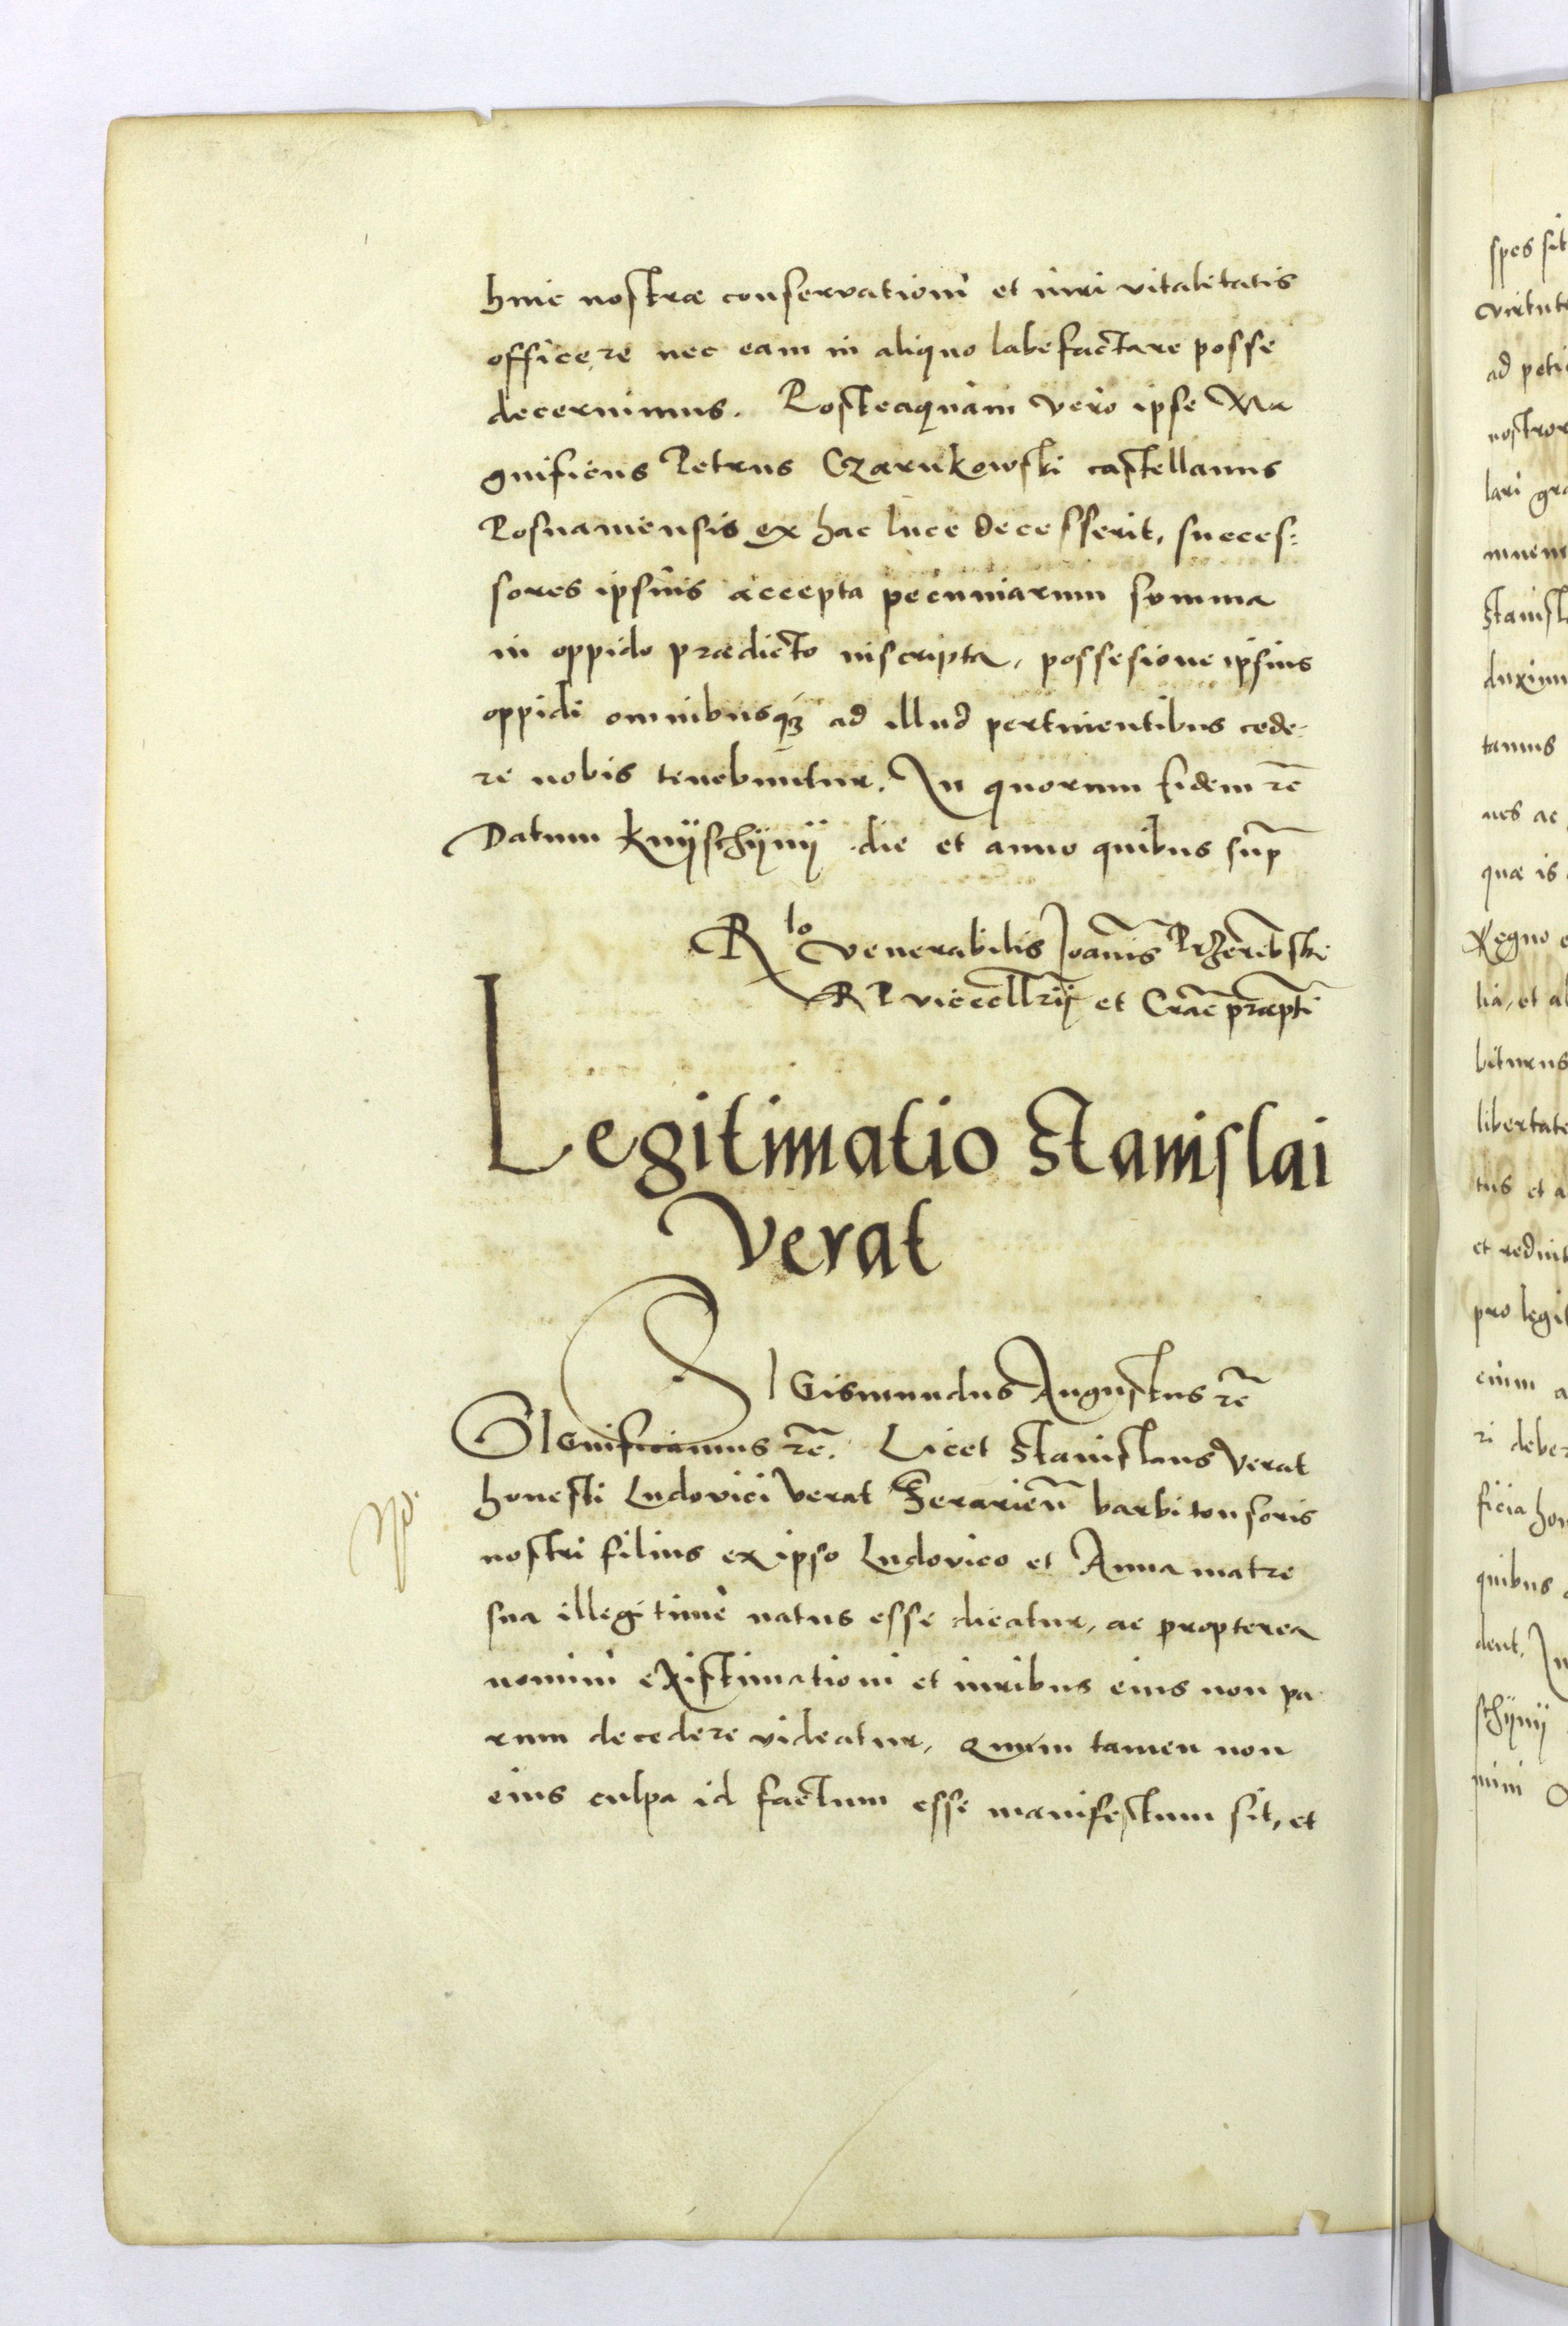 huic nostræ conservationi et iuri vitalitatis
officere nec eam in aliquo labefactare posse
decernimus. Posteaquàm verò ipse Ma
gnificus Petrus Czarnkowski castellanus
Posnaniensis ex hac luce decesserit, succes:
sores ipsius accepta pecuniarum summa
in oppido prædicto inscripta, possesione ipsius
oppidi omnibusq3 ad illud pertinentibus cede-
re nobis tenebuntur. In quorum fidem rē
Datum Knÿschÿnÿ die et anno quibus sup̄
Rlo venerabilis Joan̄is Przerēbski
R P vicecell̄rij et Crac̄ præpti
Legitimatio Stanislai
Verat
SIGismundus Augustus rē
SIGnificamus rē. Licet Stanislaus Verat
honesti Ludovici Verat Ferarien̄ barbitonsoris
nostri filius ex ipso Ludovico et Anna matre
sua illegitimè natus esse dicatur, ac propterea
nomini existimationi et iuribus eius non pa
rum decedere videatur, Quum tamen non
eius culpa id factum esse manifestum sit, et
spes sit
virtut
ad peti
nostror
lari gra
Stanisl
duximu
tamus
nes ac
quæ is
Regno e
lia, et al
biturus
libertate
tus et a
et redint
pro legit
enim a
ri deber
ficia hon
quibus
dent. In
schÿnÿ
mini